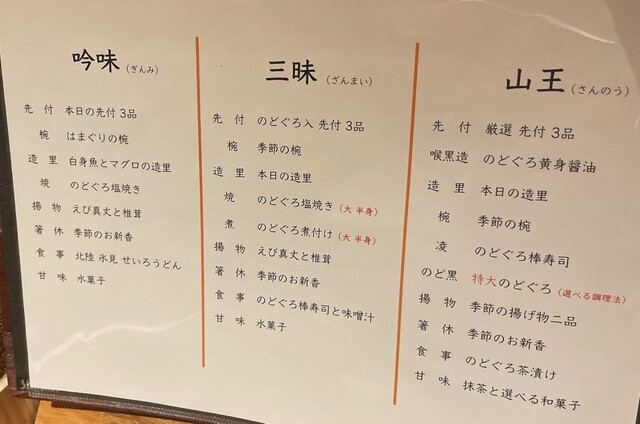 吟味(ぎんみ)
先付 本日の先付 3品
椀 はまぐりの椀
造里 白身魚とマグロの造里
焼 のどぐろ塩焼き
揚物 えび真丈と椎茸
箸休 季節のお新香
食事 北陸 氷見 せいろうどん
甘味 水菓子
三昧(ざんまい)
先付 のどぐろ入 先付 3品
椀 季節の椀
造里 本日の造里
焼 のどぐろ塩焼き(大 半身)
煮 のどぐろ煮付け(大 半身)
揚物 えび真丈と椎茸
箸休 季節のお新香
食事 のどぐろ棒寿司と味噌汁
甘味 水菓子
山王(さんのう)
先付 厳選 先付 3品
喉黒造 のどぐろ黄身醤油
造里 本日の造里
椀 季節の椀
凌 のどぐろ棒寿司
のど黒 特大のどぐろ(選べる調理法)
揚物 季節の揚げ物二品
箸休 季節のお新香
食事 のどぐろ茶漬け
甘味 抹茶と選べる和菓子